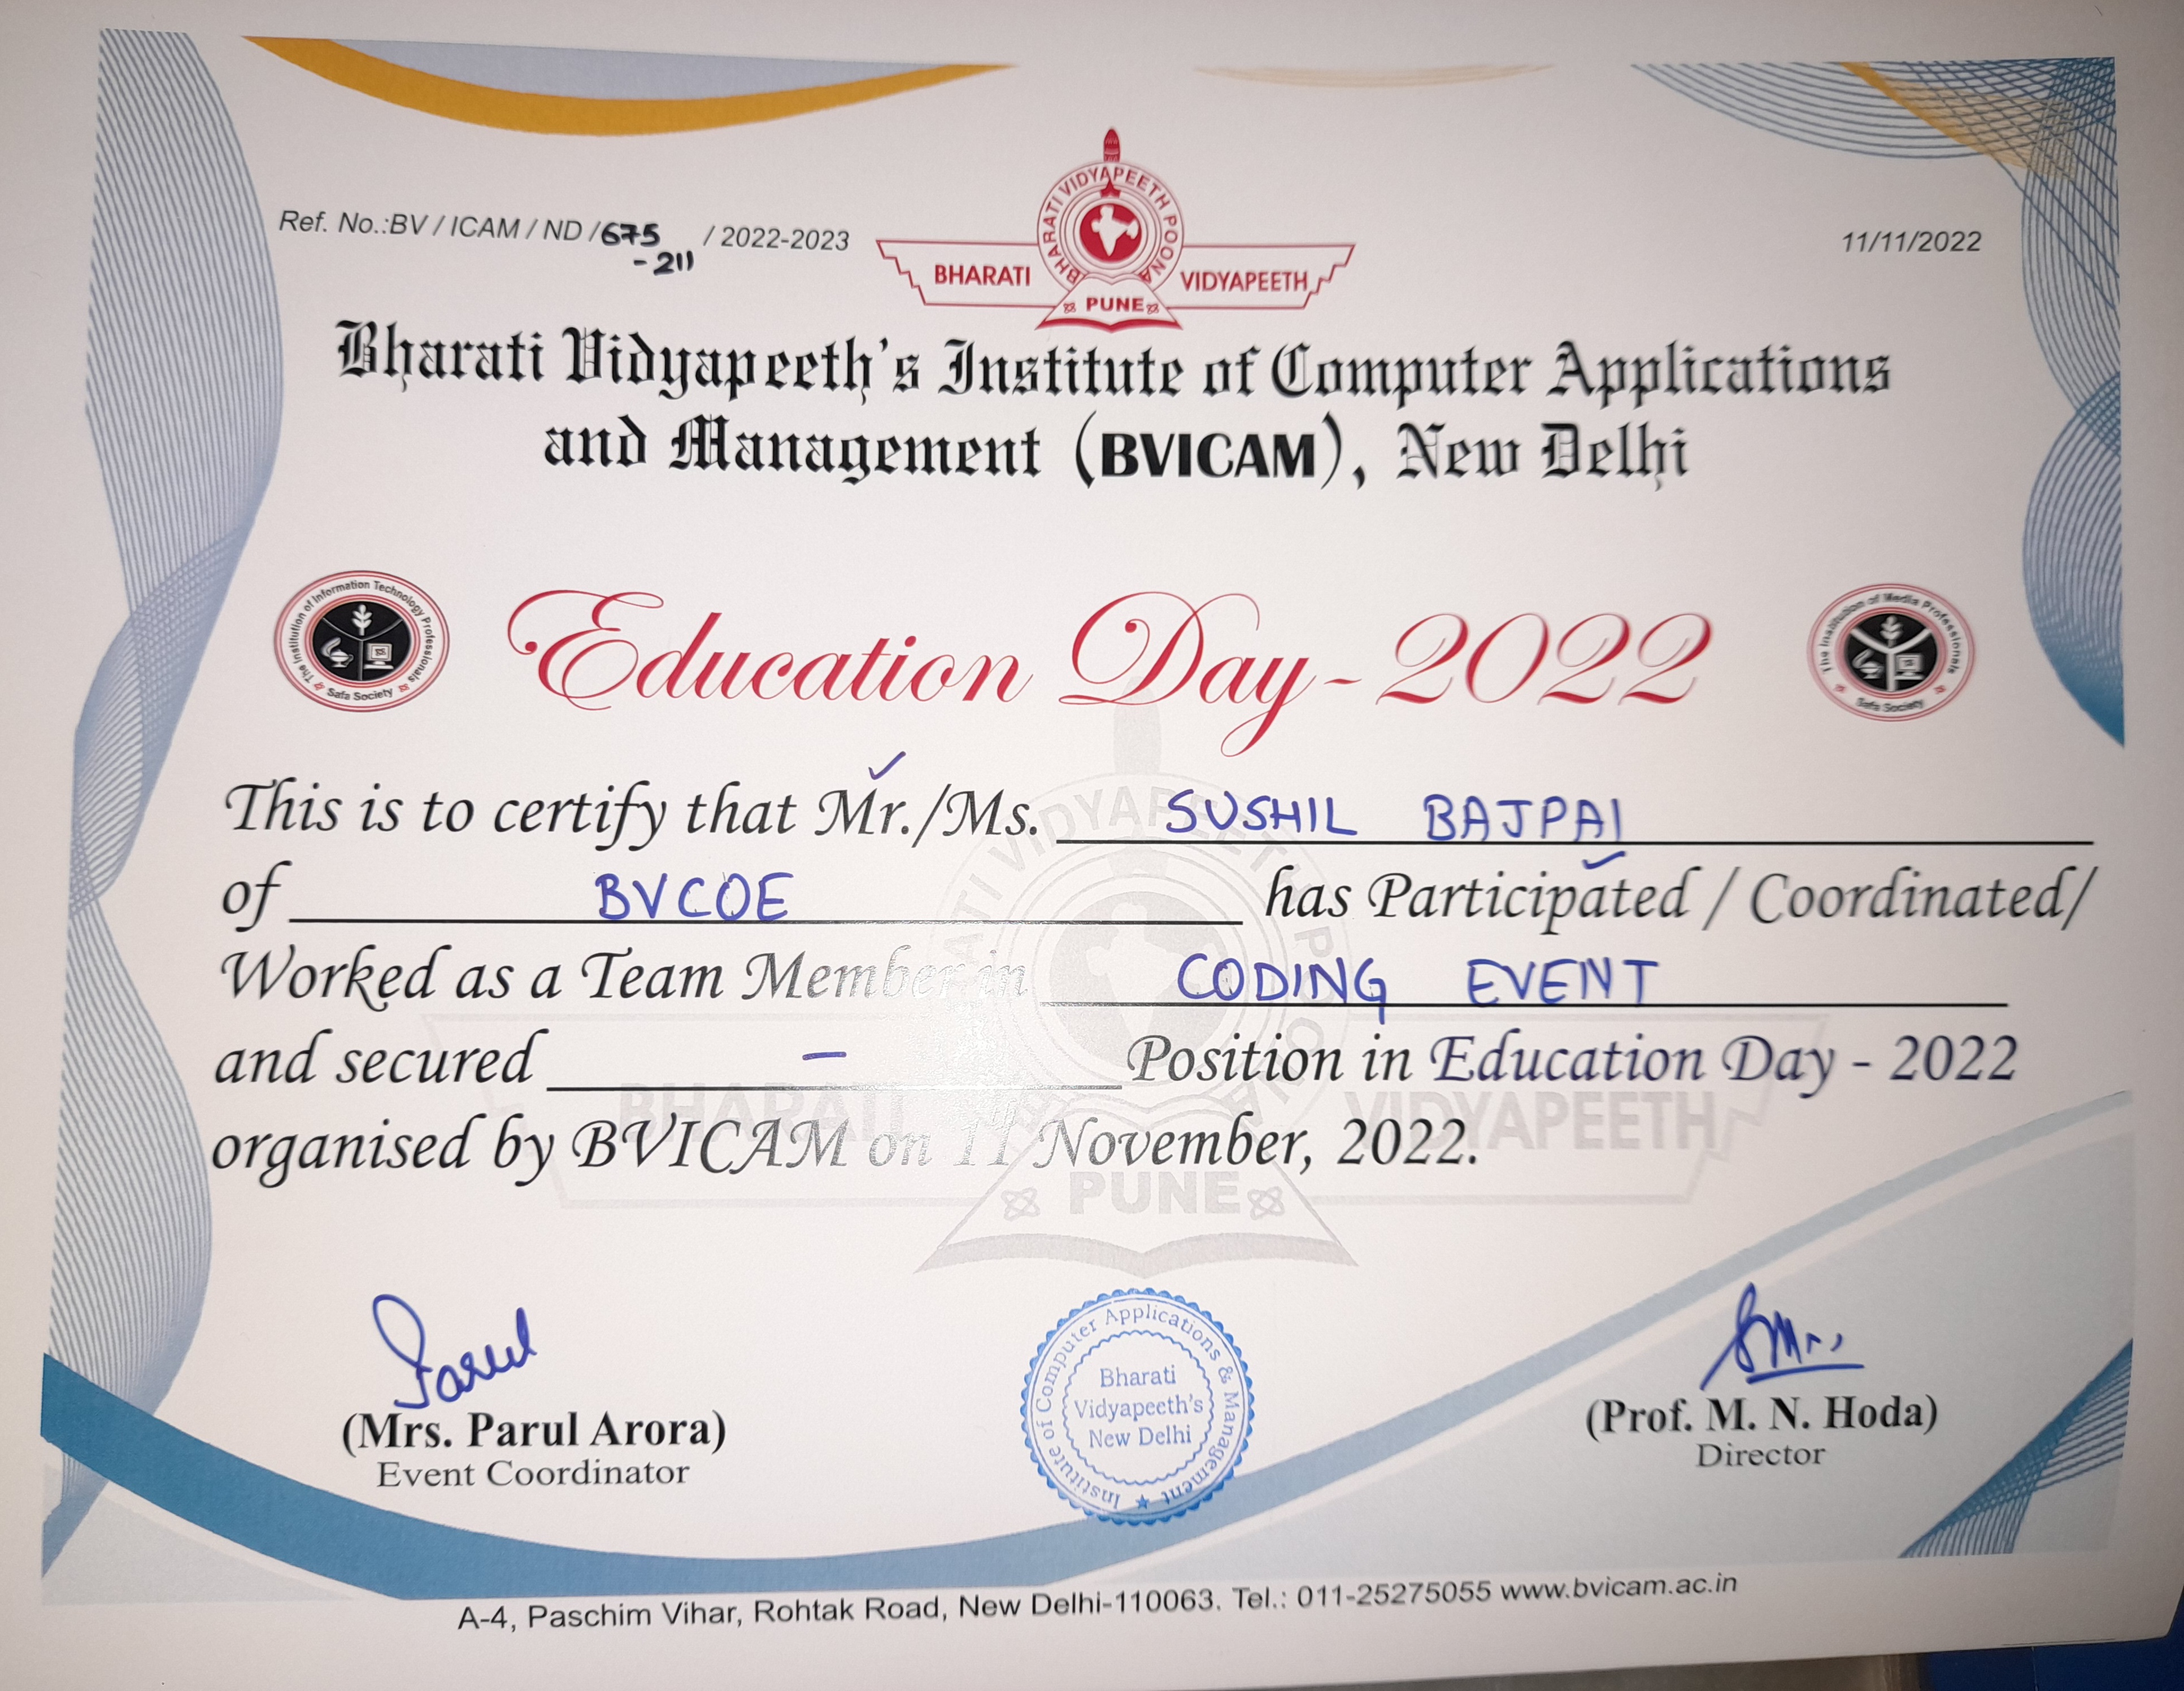 Ref. No.:BV / ICAM / ND /675 / 2022-2023
-211
BHARATI VIDYAPEETH POONA
BHARATI VIDYAPEETH
PUNE
11/11/2022
Bharati Vidyapeeth's Institute of Computer Applications
and Management (BVICAM), New Delhi
The Institution of Information Technology Professionals
Safa Society
Education Day - 2022
The Institution of Media Professionals
Safa Society
This is to certify that Mr./Ms. SUSHIL BAJPAI
of BVCOE has Participated / Coordinated/
Worked as a Team Member in CODING EVENT
and secured - Position in Education Day - 2022
organised by BVICAM on 11th November, 2022.
BHARATI VIDYAPEETH
PUNE
Parul
(Mrs. Parul Arora)
Event Coordinator
Institute of Computer Applications & Management
Bharati
Vidyapeeth's
New Delhi
(Prof. M. N. Hoda)
Director
A-4, Paschim Vihar, Rohtak Road, New Delhi-110063. Tel.: 011-25275055 www.bvicam.ac.in